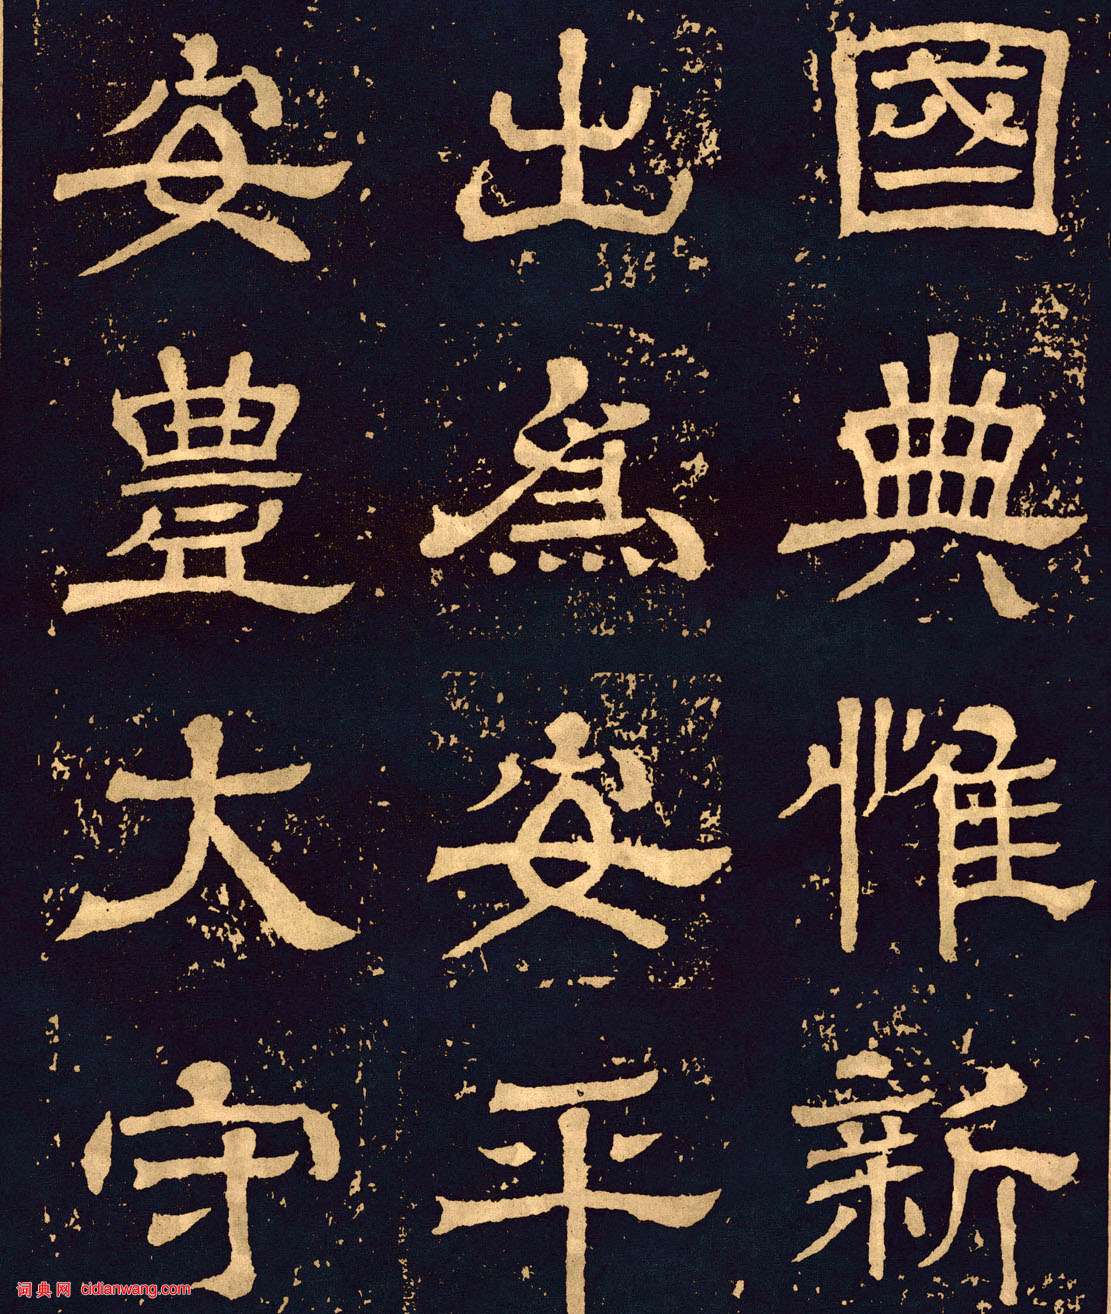 國典惟新
出為安平
安豊大守
词典网 cidianwang.com